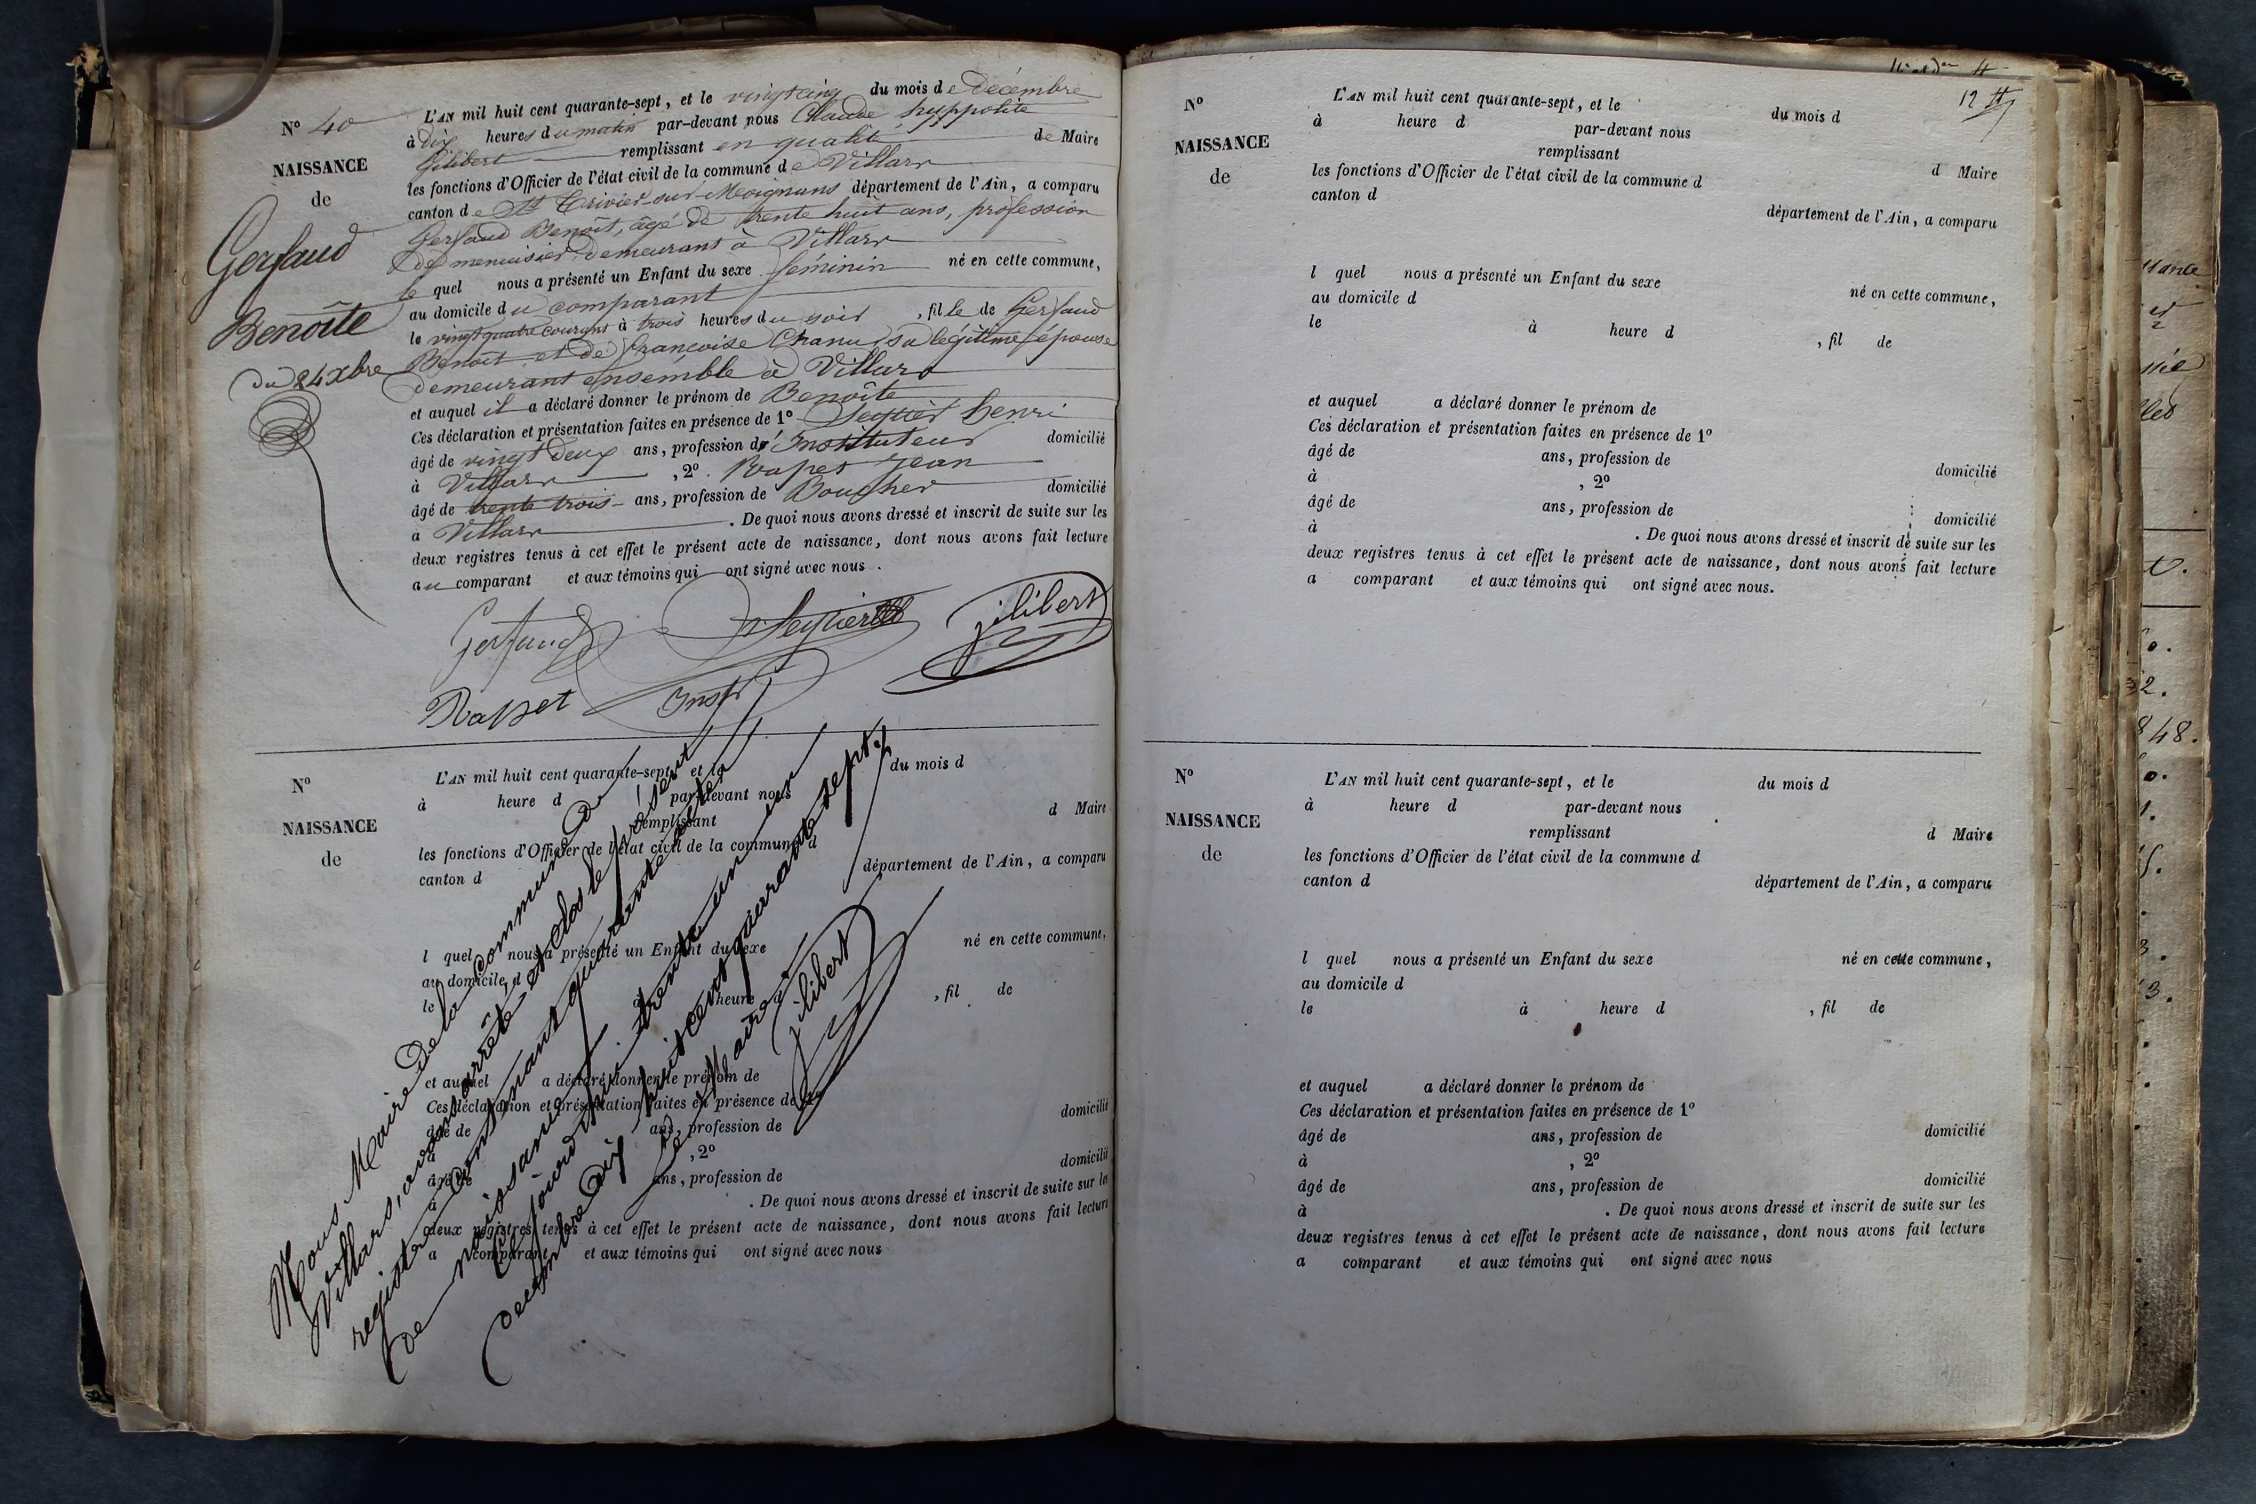 N° 40
NAISSANCE
de
Gerfaud
Benoîte
du 24 Xbre
L'AN mil huit cent quarante-sept, et le vingt cinq du mois de Décembre
à Dix heures du matin par-devant nous Claude hyppolite
Gilibert remplissant en qualité de Maire
les fonctions d'Officier de l'état civil de la commune de Villars
canton de St Trivier-sur-Moignans département de l'Ain, a comparu
Gerfaud Benoit, âgé de trente huit ans, profession
de menuisier demeurant à Villars
le quel nous a présenté un Enfant du sexe féminin né en cette commune,
au domicile du comparant
le vingt quatre courant à trois heures du soir, fille de Gerfaud
Benoit et de françoise Chanu, sa légitime épouse
demeurant ensemble à Villars
et auquel il a déclaré donner le prénom de Benoîte
Ces déclaration et présentation faites en présence de 1° Seytier henri
âgé de vingt deux ans, profession d'Instituteur domicilié
à Villars, 2° Rapet Jean
âgé de trente trois ans, profession de Boucher domicilié
à Villars. De quoi nous avons dressé et inscrit de suite sur les
deux registres tenus à cet effet le présent acte de naissance, dont nous avons fait lecture
au comparant et aux témoins qui ont signé avec nous.
Gerfaud Seytier jilibert
Rapet Instr
N°
NAISSANCE
de
L'AN mil huit cent quarante-sept, et le du mois d
à heure d par-devant nous
remplissant d Maire
les fonctions d'Officier de l'état civil de la commune d
canton d département de l'Ain, a comparu
l quel nous a présenté un Enfant du sexe né en cette commune,
au domicile d
le à heure d, fil de
et auquel a déclaré donner le prénom de
Ces déclaration et présentation faites en présence de
âgé de ans, profession de domicilié
à, 2°
âgé de ans, profession de domicilié
à. De quoi nous avons dressé et inscrit de suite sur les
deux registres tenus à cet effet le présent acte de naissance, dont nous avons fait lecture
a comparant et aux témoins qui ont signé avec nous
Nous Maire de la commune de
Villars, avons arrêté et clos le présent
registre contenant quarante actes
de naissance
Ce jourd'hui trente un
décembre dix huit cent quarante sept.
Le Maire
jilibert
12
N°
NAISSANCE
de
L'AN mil huit cent quarante-sept, et le du mois d
à heure d par-devant nous
remplissant d Maire
les fonctions d'Officier de l'état civil de la commune d
canton d département de l'Ain, a comparu
l quel nous a présenté un Enfant du sexe né en cette commune,
au domicile d
le à heure d, fil de
et auquel a déclaré donner le prénom de
Ces déclaration et présentation faites en présence de 1°
âgé de ans, profession de domicilié
à, 2°
âgé de ans, profession de domicilié
à. De quoi nous avons dressé et inscrit de suite sur les
deux registres tenus à cet effet le présent acte de naissance, dont nous avons fait lecture
a comparant et aux témoins qui ont signé avec nous.
N°
NAISSANCE
de
L'AN mil huit cent quarante-sept, et le du mois d
à heure d par-devant nous
remplissant d Maire
les fonctions d'Officier de l'état civil de la commune d
canton d département de l'Ain, a comparu
l quel nous a présenté un Enfant du sexe né en cette commune,
au domicile d
le à heure d, fil de
et auquel a déclaré donner le prénom de
Ces déclaration et présentation faites en présence de 1°
âgé de ans, profession de domicilié
à, 2°
âgé de ans, profession de domicilié
à. De quoi nous avons dressé et inscrit de suite sur les
deux registres tenus à cet effet le présent acte de naissance, dont nous avons fait lecture
a comparant et aux témoins qui ont signé avec nous